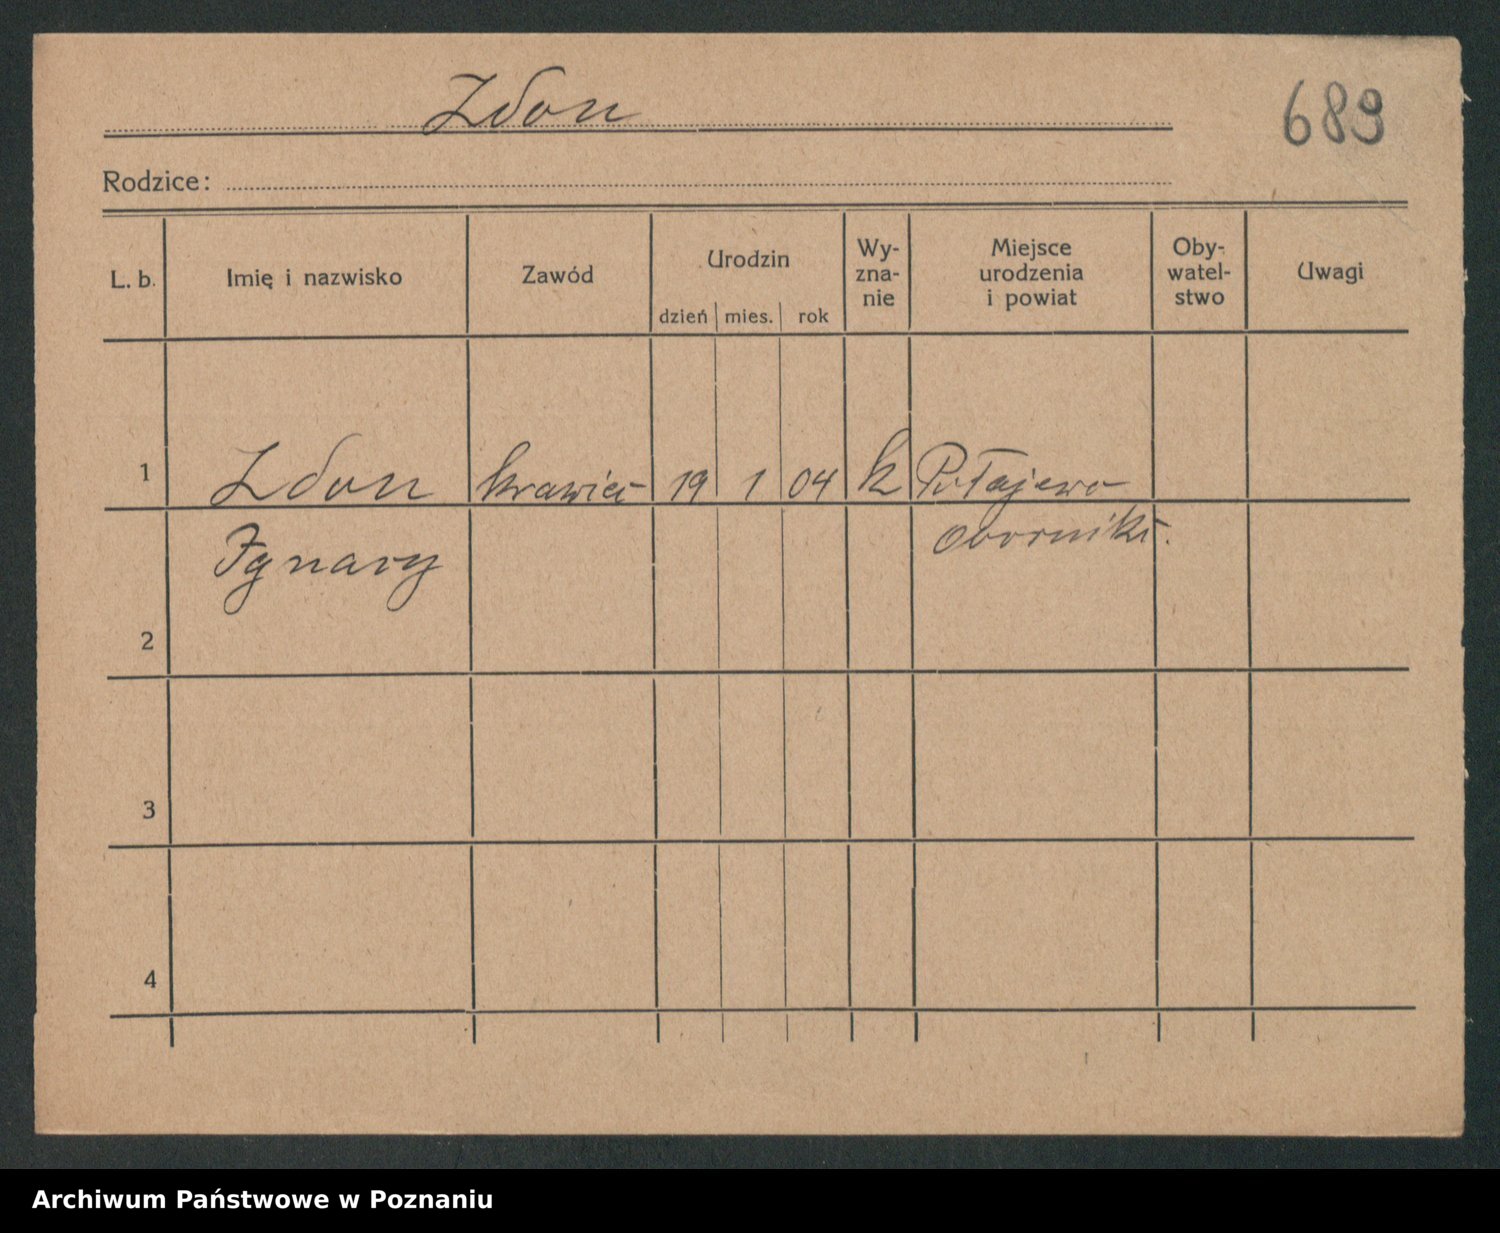 Zdon
689
Rodzice:
L. b.
Imię i nazwisko
Zawód
Urodzin
dzień mies. rok
Wy-
zna-
nie
Miejsce
urodzenia
i powiat
Oby-
watel-
stwo
Uwagi
1 Zdon krawiec 19 1 04 k Połajewo
Ignacy Oborniki.
2
3
4
Archiwum Państwowe w Poznaniu